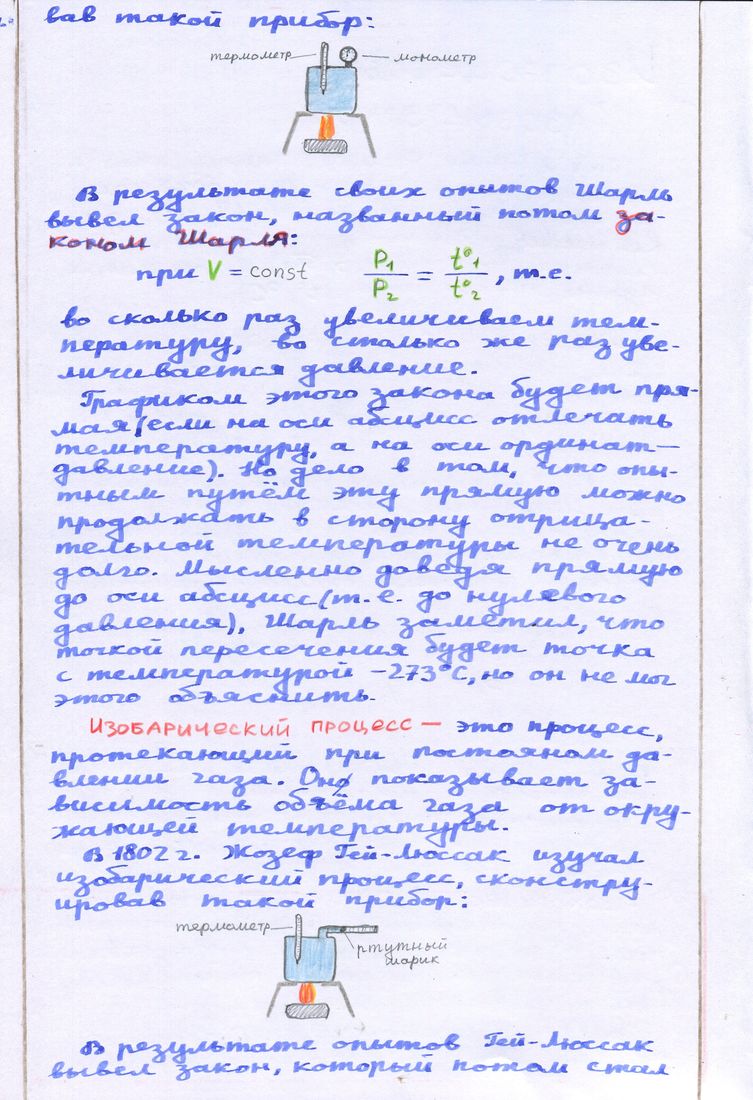 вав такой прибор:
термометр
монометр
В результате своих опытов Шарль
вывел закон, названный потом за-
коном Шарля:
при V = const P₁/P₂ = t°₁/t°₂, т.е.
во сколько раз увеличиваем тем-
пературу, во столько же раз уве-
личивается давление.
Графиком этого закона будет пря-
мая (если на оси абсцисс отмечать
температуру, а на оси ординат —
давление). Но дело в том, что опы-
тным путём эту прямую можно
продолжать в сторону отрица-
тельной температуры не очень
долго. Мысленно доведя прямую
до оси абсцисс (т.е. до нулевого
давления), Шарль заметил, что
точкой пересечения будет точка
с температурой -273°C, но он не мог
этого объяснить.
Изобарический процесс — это процесс,
протекающий при постояном да-
влении газа. Он показывает за-
висимость объёма газа от окру-
жающей температуры.
В 1802 г. Жозеф Гей-Люссак изучал
изобарический процесс, сконстру-
ировав такой прибор:
термометр
ртутный
шарик
В результате опытов Гей-Люссак
вывел закон, который потом стал